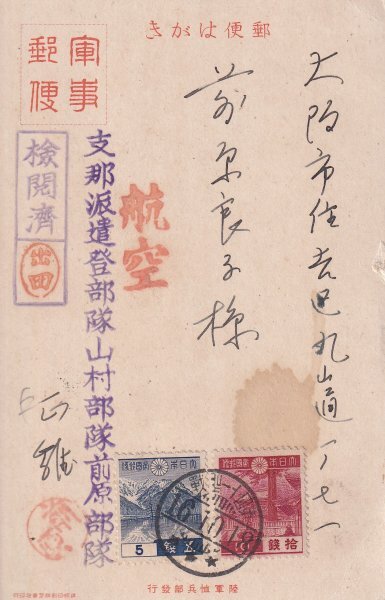 郵便はがき
軍事
郵便
大阪市住吉区丸山通一ノ七一
前原良子様
航空
支那派遣登部隊山村部隊前原部隊
正雄
検閲済
大日本帝国郵便
拾銭
10
大日本帝国郵便
五銭
5
16.10.18
陸軍恤兵部発行